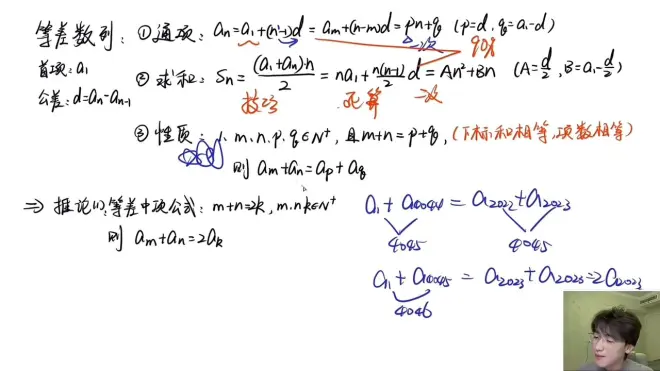 等差数列: ①通项: an=a1+(n-1)d=am+(n-m)d=pn+q (p=d,q=a1-d)
一次
90%
首项:a1
公差:d=an-an-1
②求和: Sn=(a1+an)·n/2=na1+n(n-1)/2 d=An²+Bn (A=d/2,B=a1-d/2)
技巧 死算 二次
③性质: 1. m.n.p.q∈N⁺, 且m+n=p+q, (下标和相等,项数相等)
则 am+an=ap+aq
⇒ 推论(1):等差中项公式: m+n=2k, m.n.k∈N⁺
则 am+an=2ak
a1+a4044=a2022+a2023
4045 4045
a1+a4045=a2023+a2023=2a2023
4046